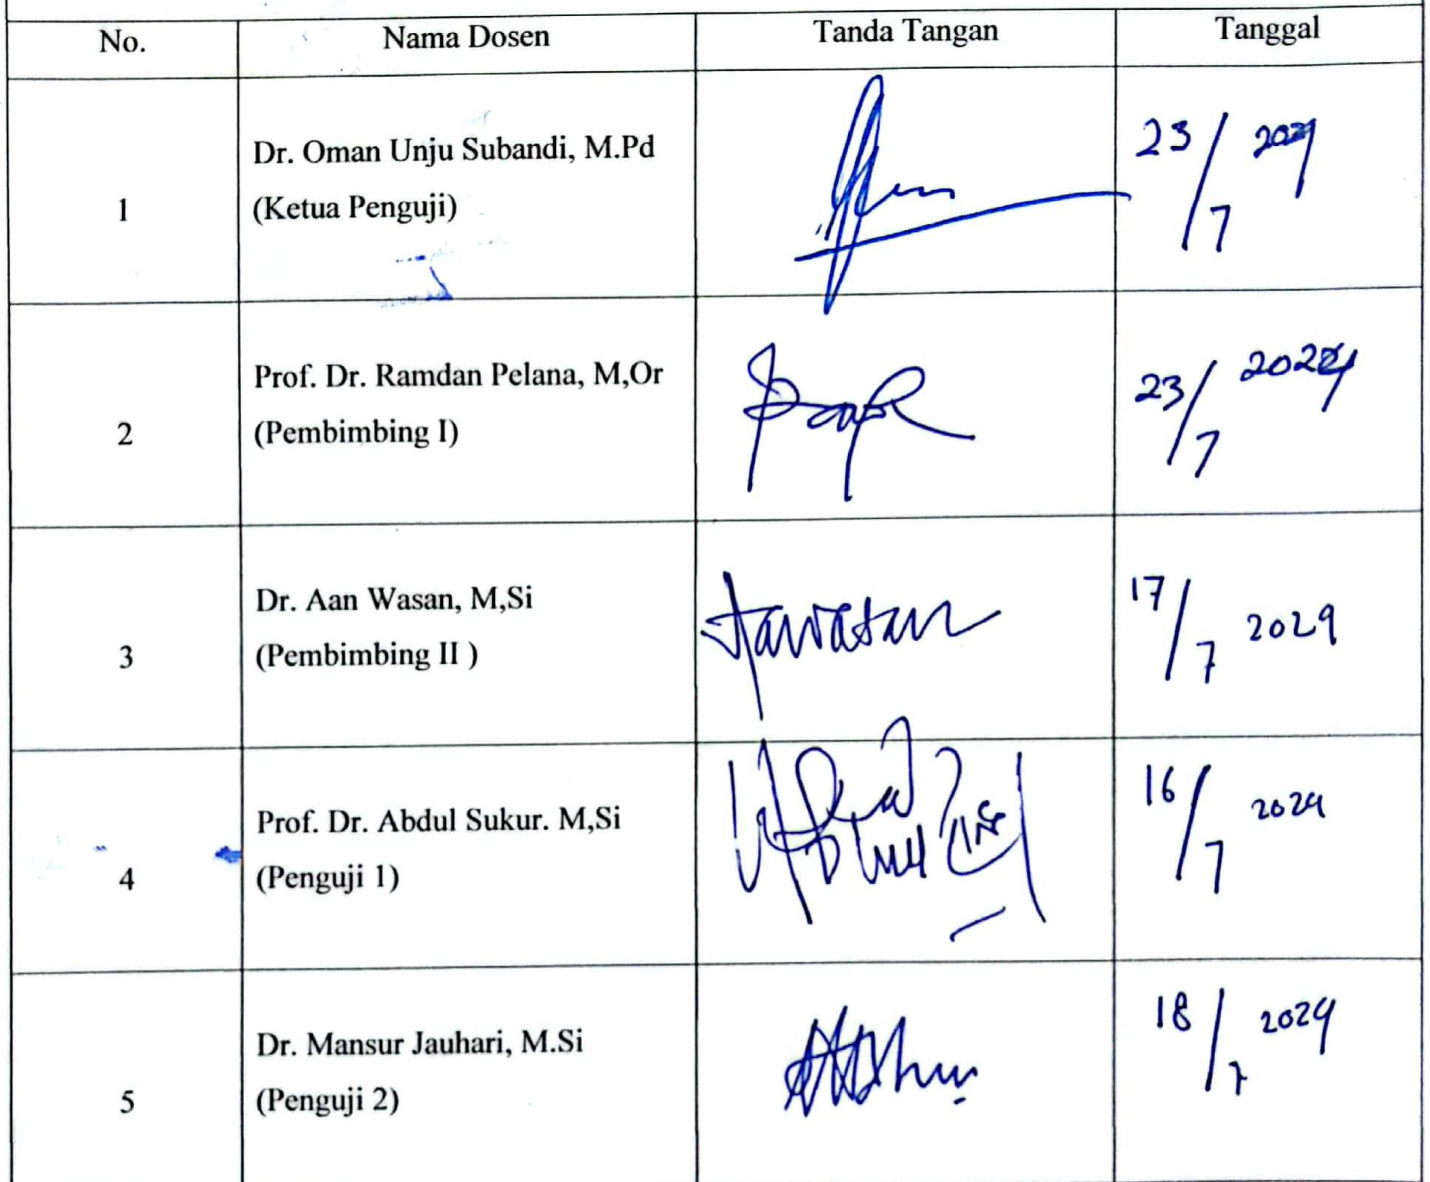 No. Nama Dosen Tanda Tangan Tanggal
1 Dr. Oman Unju Subandi, M.Pd
(Ketua Penguji)
23/7 2024
2 Prof. Dr. Ramdan Pelana, M,Or
(Pembimbing I)
23/7 2024
3 Dr. Aan Wasan, M,Si
(Pembimbing II )
17/7 2024
4 Prof. Dr. Abdul Sukur. M,Si
(Penguji 1)
16/7 2024
5 Dr. Mansur Jauhari, M.Si
(Penguji 2)
18/7 2024